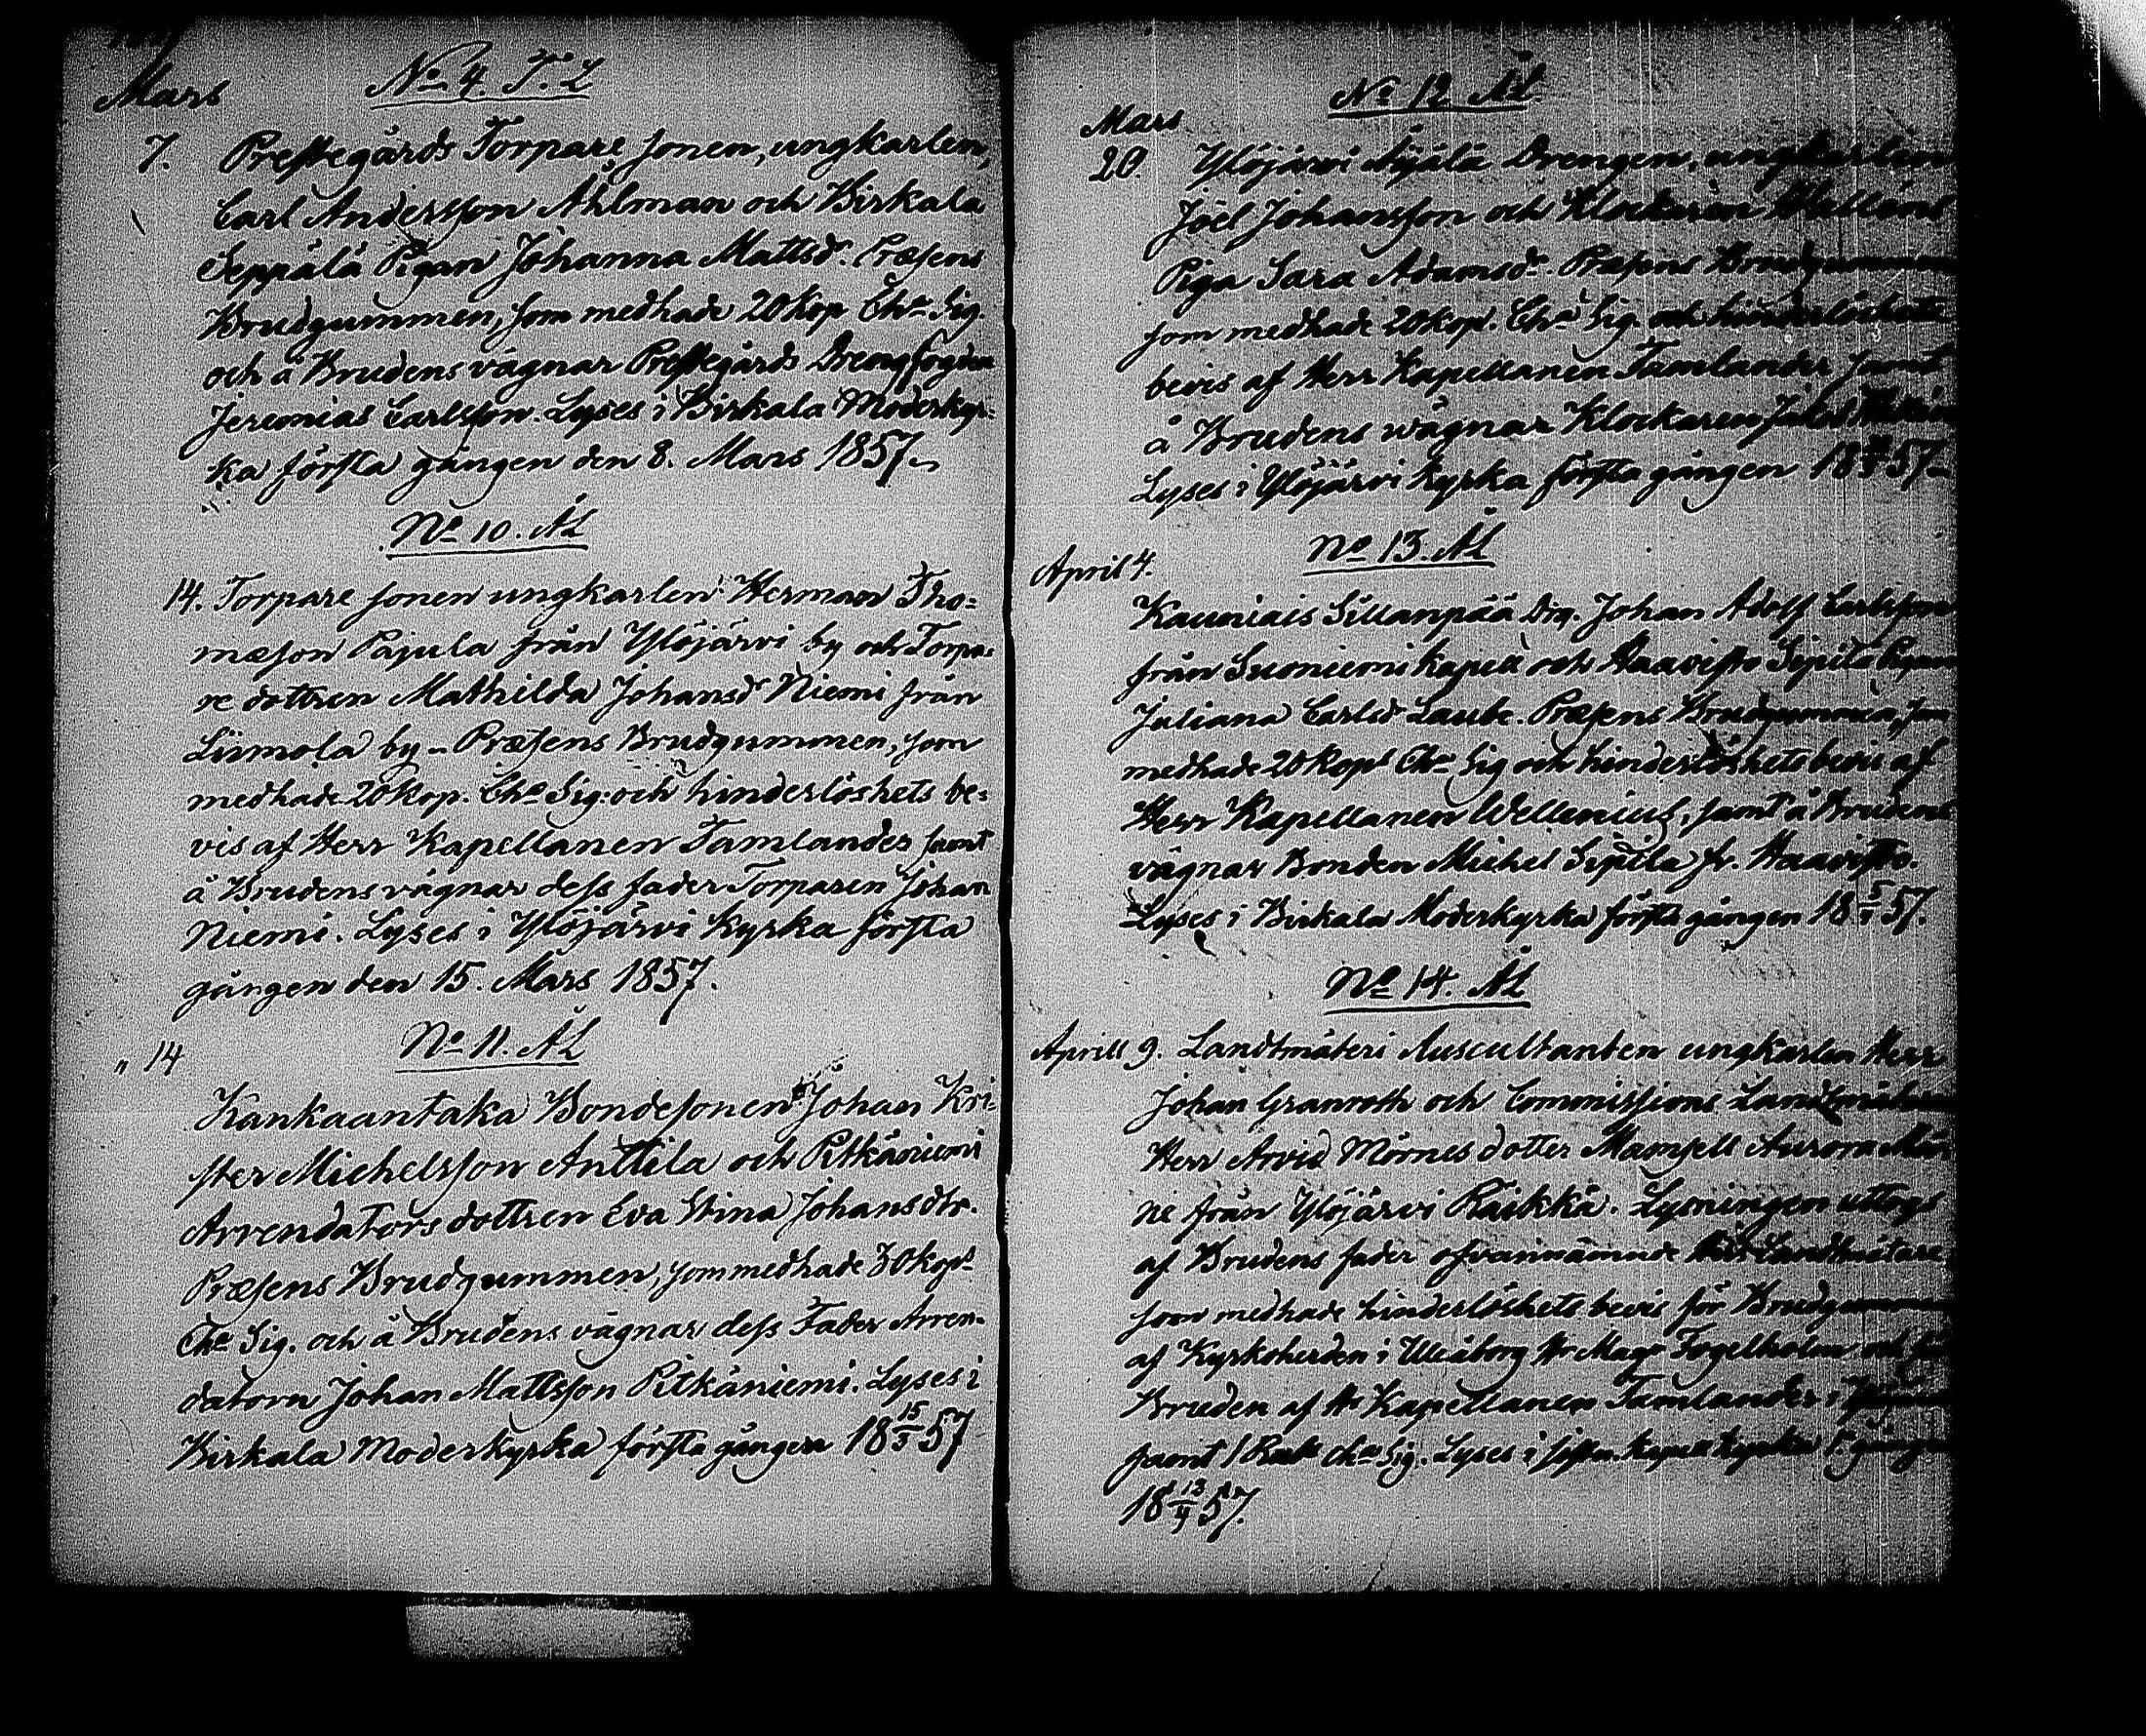 Mars
No 4. T. L
7. Prestegårds Torpare sonen, ungkarlen,
Carl Andersson Åhlman och Birkala
Seppälä Pigan Johanna Mattsdr. Præsens
Brudgummen, som medhade 20 kop Cha Sig.
och å Brudens vägnar Prestegårds Drengfogden
Jeremias Carlsson. Lyses i Birkala Moderkyr=
ka första gången den 8. Mars 1857.
No 10. ÄL
14. Torpare sonen ungkarlen Herman Tho=
masson Pajula från Ylöjärvi by och Torpa=
re dottren Mathilda Johansdr Niemi från
Limola by - Præsens Brudgummen, som
medhade 20 kop. Cha Sig. och hinderlöshets be=
vis af Herr Kapellanen Tamlander samt
å Brudens vägnar dess fader Torparen Johan
Niemi. Lyses i Ylöjärvi Kyrka första
gången den 15. Mars 1857.
No 11. ÄL
" 14
Kankaantaka Bondesonen Johan Kri=
ster Michelsson Anttila och Pitkäniemi
Arrendators dottren Eva Stina Johansdtr.
Præsens Brudgummen, som medhade 30 kopr
Cha Sig. och å Brudens vägnar dess Fader Arren=
datorn Johan Mattsson Pitkäniemi. Lyses i
Birkala Moderkyrka första gången 18 15/3 57
No 12 ÄL
Mars
20. Ylöjärvi Äijälä Drengen, ungkarlen
Joel Johansson och Klockaren
Piga Sara Adamsdr. Præsens Brudgummen
som medhade 20 kop. Cha Sig. och hinderlöshets
bevis af Herr Kapellanen Tamlander samt
å Brudens wägnar Klockaren
Lyses i Ylöjärvi Kyrka första gången 18 57
No 13. ÄL
April 4.
Kauniais Sillanpää Drg. Johan Adolf Carlsson
från Suoniemi Kapell och Haavisto Sipilä Pigan
Juliana Carlsd Laube. Præsens Brudgummen, som
medhade 20 Kopr Cha Sig och hinderlöshets bevis af
Herr Kapellanen Wellenius, samt å Brudens
vägnar Bonden Michel Sipilä fr. Haavisto.
Lyses i Birkala Moderkyrka första gången 18 5/4 57.
No 14. ÄL
Aprill 9. Landtmäteri Auscultanten ungkarlen Herr
Johan Granroth och Commissions Landtmätaren
Herr Arvid Mörnes dotter Mamsell Aurora Mör
ne från Ylöjärvi Räikkä. Lysningen uttogs
af Brudens fader ofvannämnde Landtmätare
som medhade hinderlöshets bevis för Brudgummen
af Kyrkoherden i Uleåborg Hr Magr Fogelholm och för
Bruden af Hr Kapellanen Tamlander i
samt 1 Rub Cha Sig. Lyses i Kapell kyrka 1 gången
18 13/4 57.